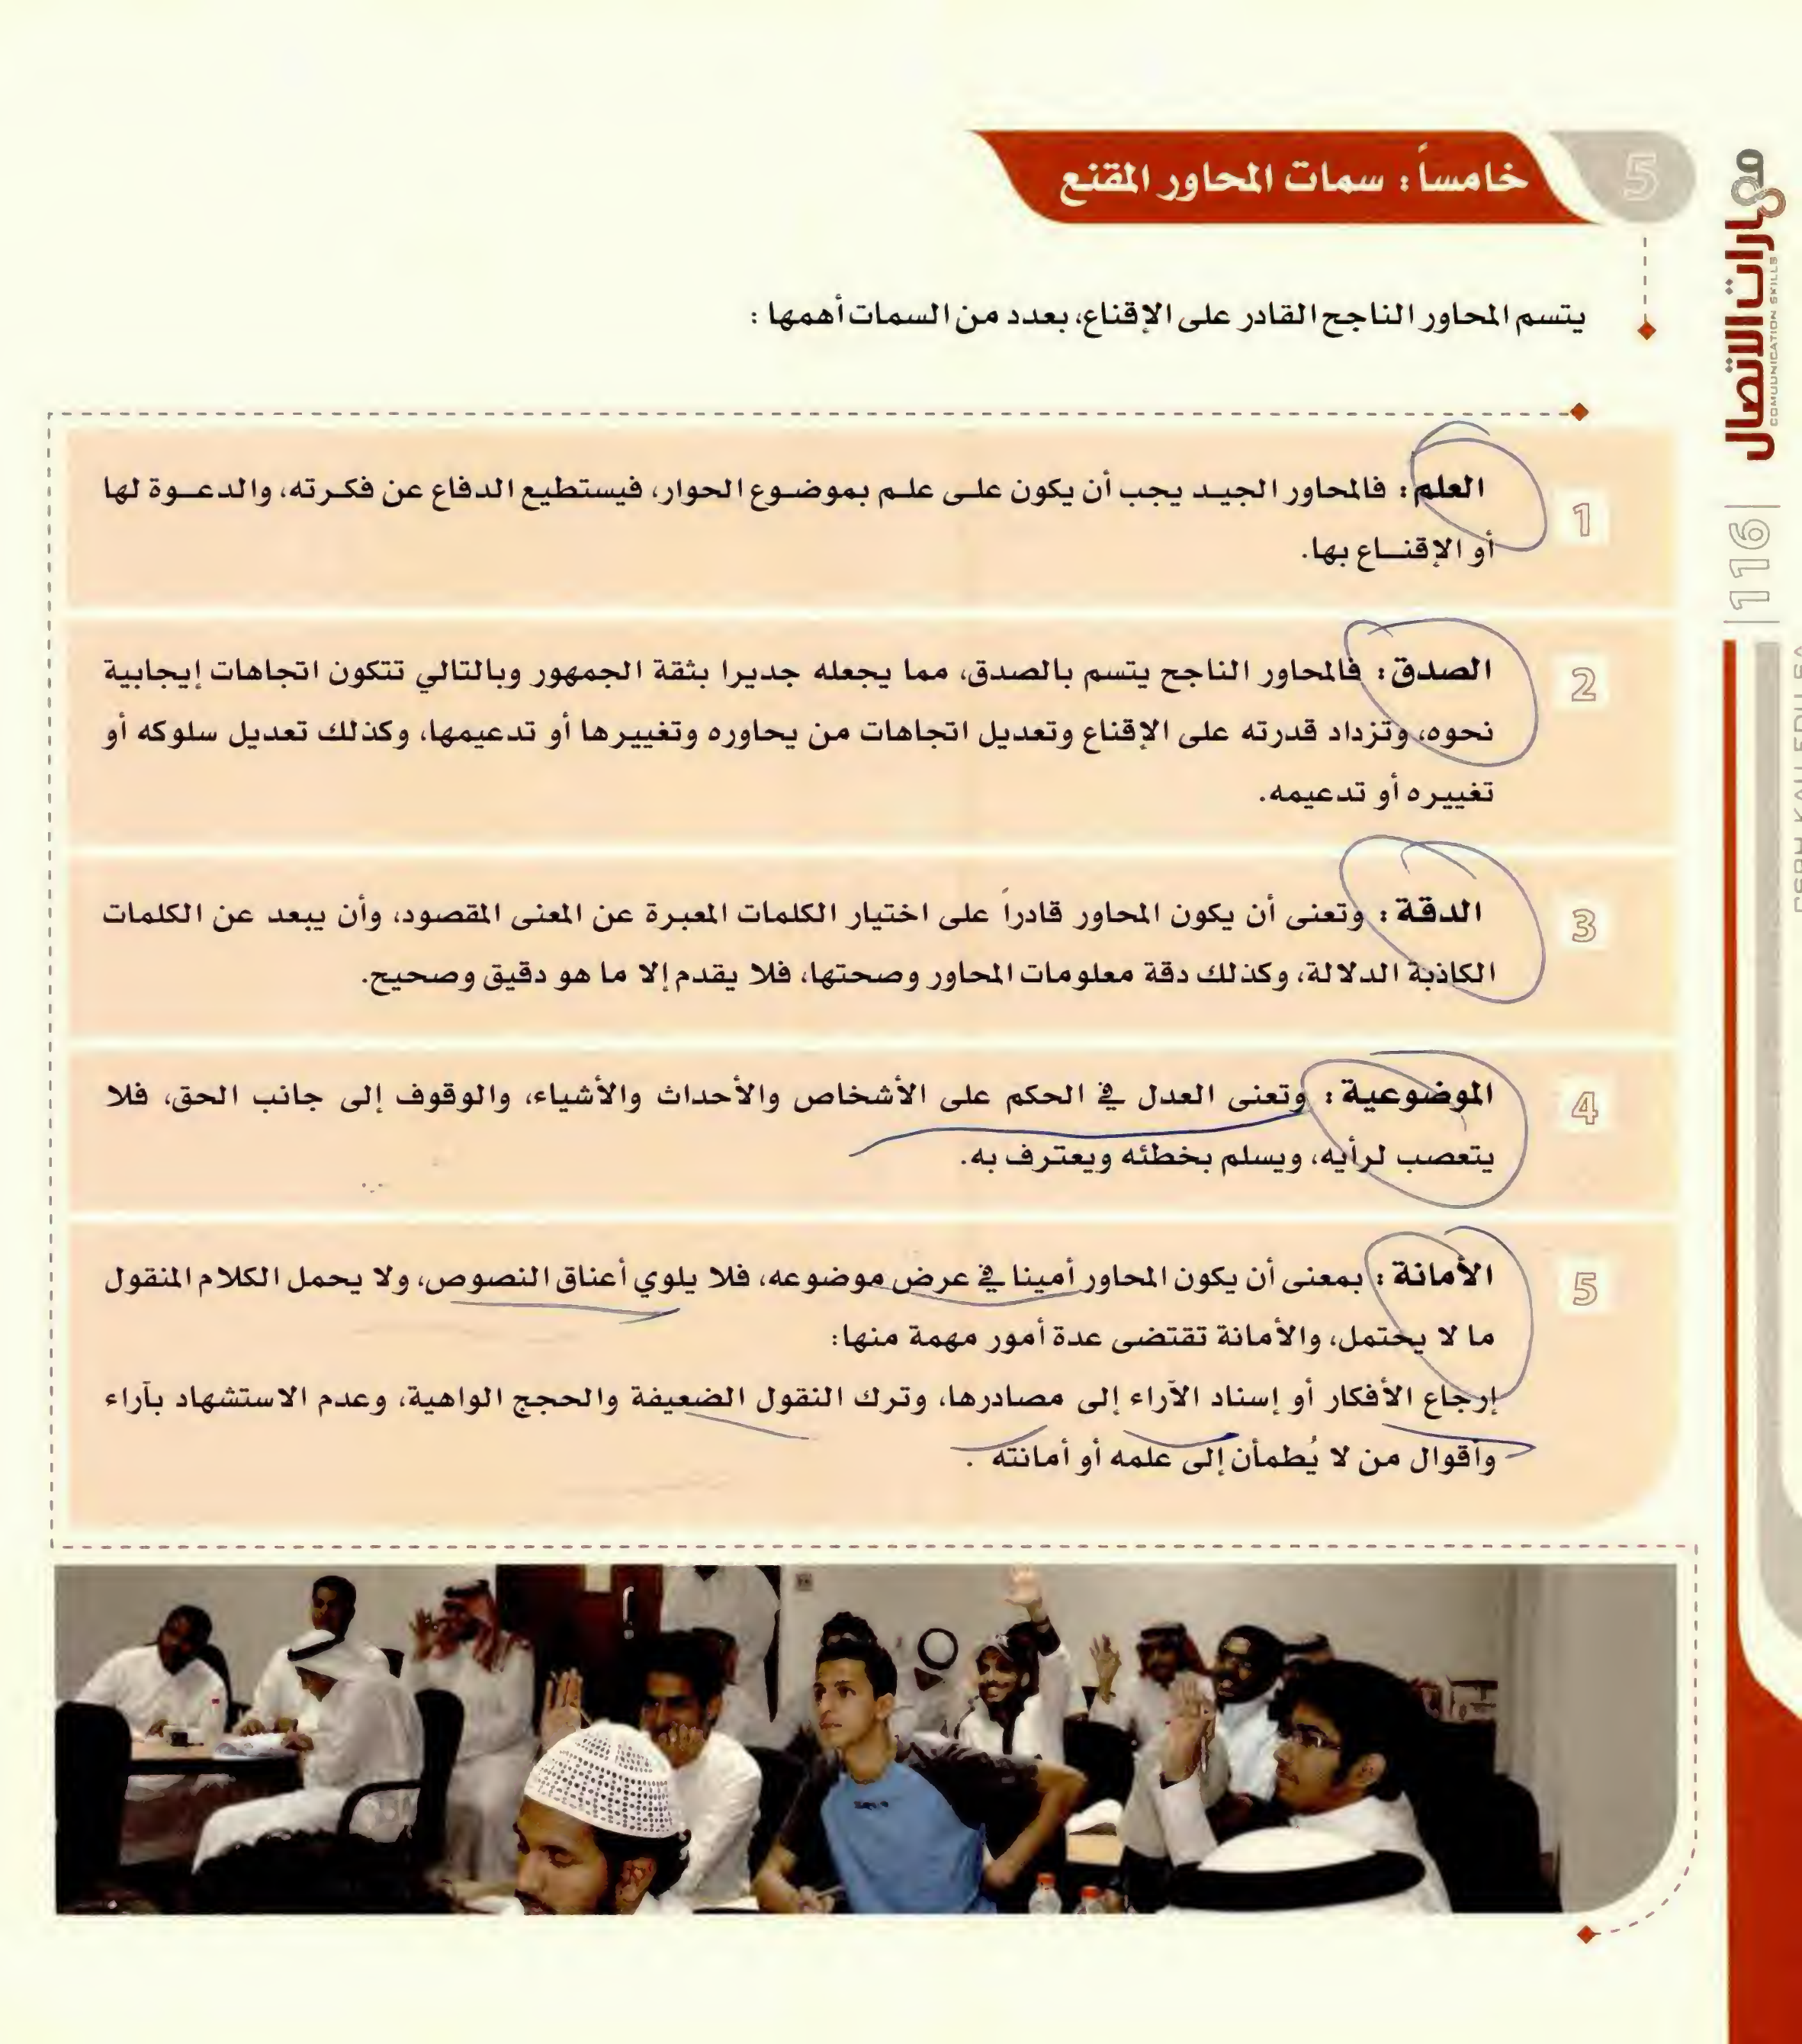 5
خامساً : سمات المحاور المقنع
يتسم المحاور الناجح القادر على الإقناع، بعدد من السمات أهمها :
1
العلم : فالمحاور الجيـد يجب أن يكون علـى علـم بموضـوع الحوار، فيستطيع الدفاع عن فكـرته، والدعـوة لها
أو الإقنـاع بها.
2
الصدق : فالمحاور الناجح يتسم بالصدق، مما يجعله جديرا بثقة الجمهور وبالتالي تتكون اتجاهات إيجابية
نحوه، وتزداد قدرته على الإقناع وتعديل اتجاهات من يحاوره وتغييرها أو تدعيمها، وكذلك تعديل سلوكه أو
تغييره أو تدعيمه.
3
الدقة : وتعنى أن يكون المحاور قادراً على اختيار الكلمات المعبرة عن المعنى المقصود، وأن يبعد عن الكلمات
الكاذبة الدلالة، وكذلك دقة معلومات المحاور وصحتها، فلا يقدم إلا ما هو دقيق وصحيح.
4
الموضوعية : وتعنى العدل في الحكم على الأشخاص والأحداث والأشياء، والوقوف إلى جانب الحق، فلا
يتعصب لرأيه، ويسلم بخطئه ويعترف به.
5
الأمانة : بمعنى أن يكون المحاور أمينا في عرض موضوعه، فلا يلوي أعناق النصوص، ولا يحمل الكلام المنقول
ما لا يحتمل، والأمانة تقتضى عدة أمور مهمة منها:
إرجاع الأفكار أو إسناد الآراء إلى مصادرها، وترك النقول الضعيفة والحجج الواهية، وعدم الاستشهاد بآراء
وأقوال من لا يُطمأن إلى علمه أو أمانته .
مهارات الاتصال
COMUUNICATION SKILLS
116